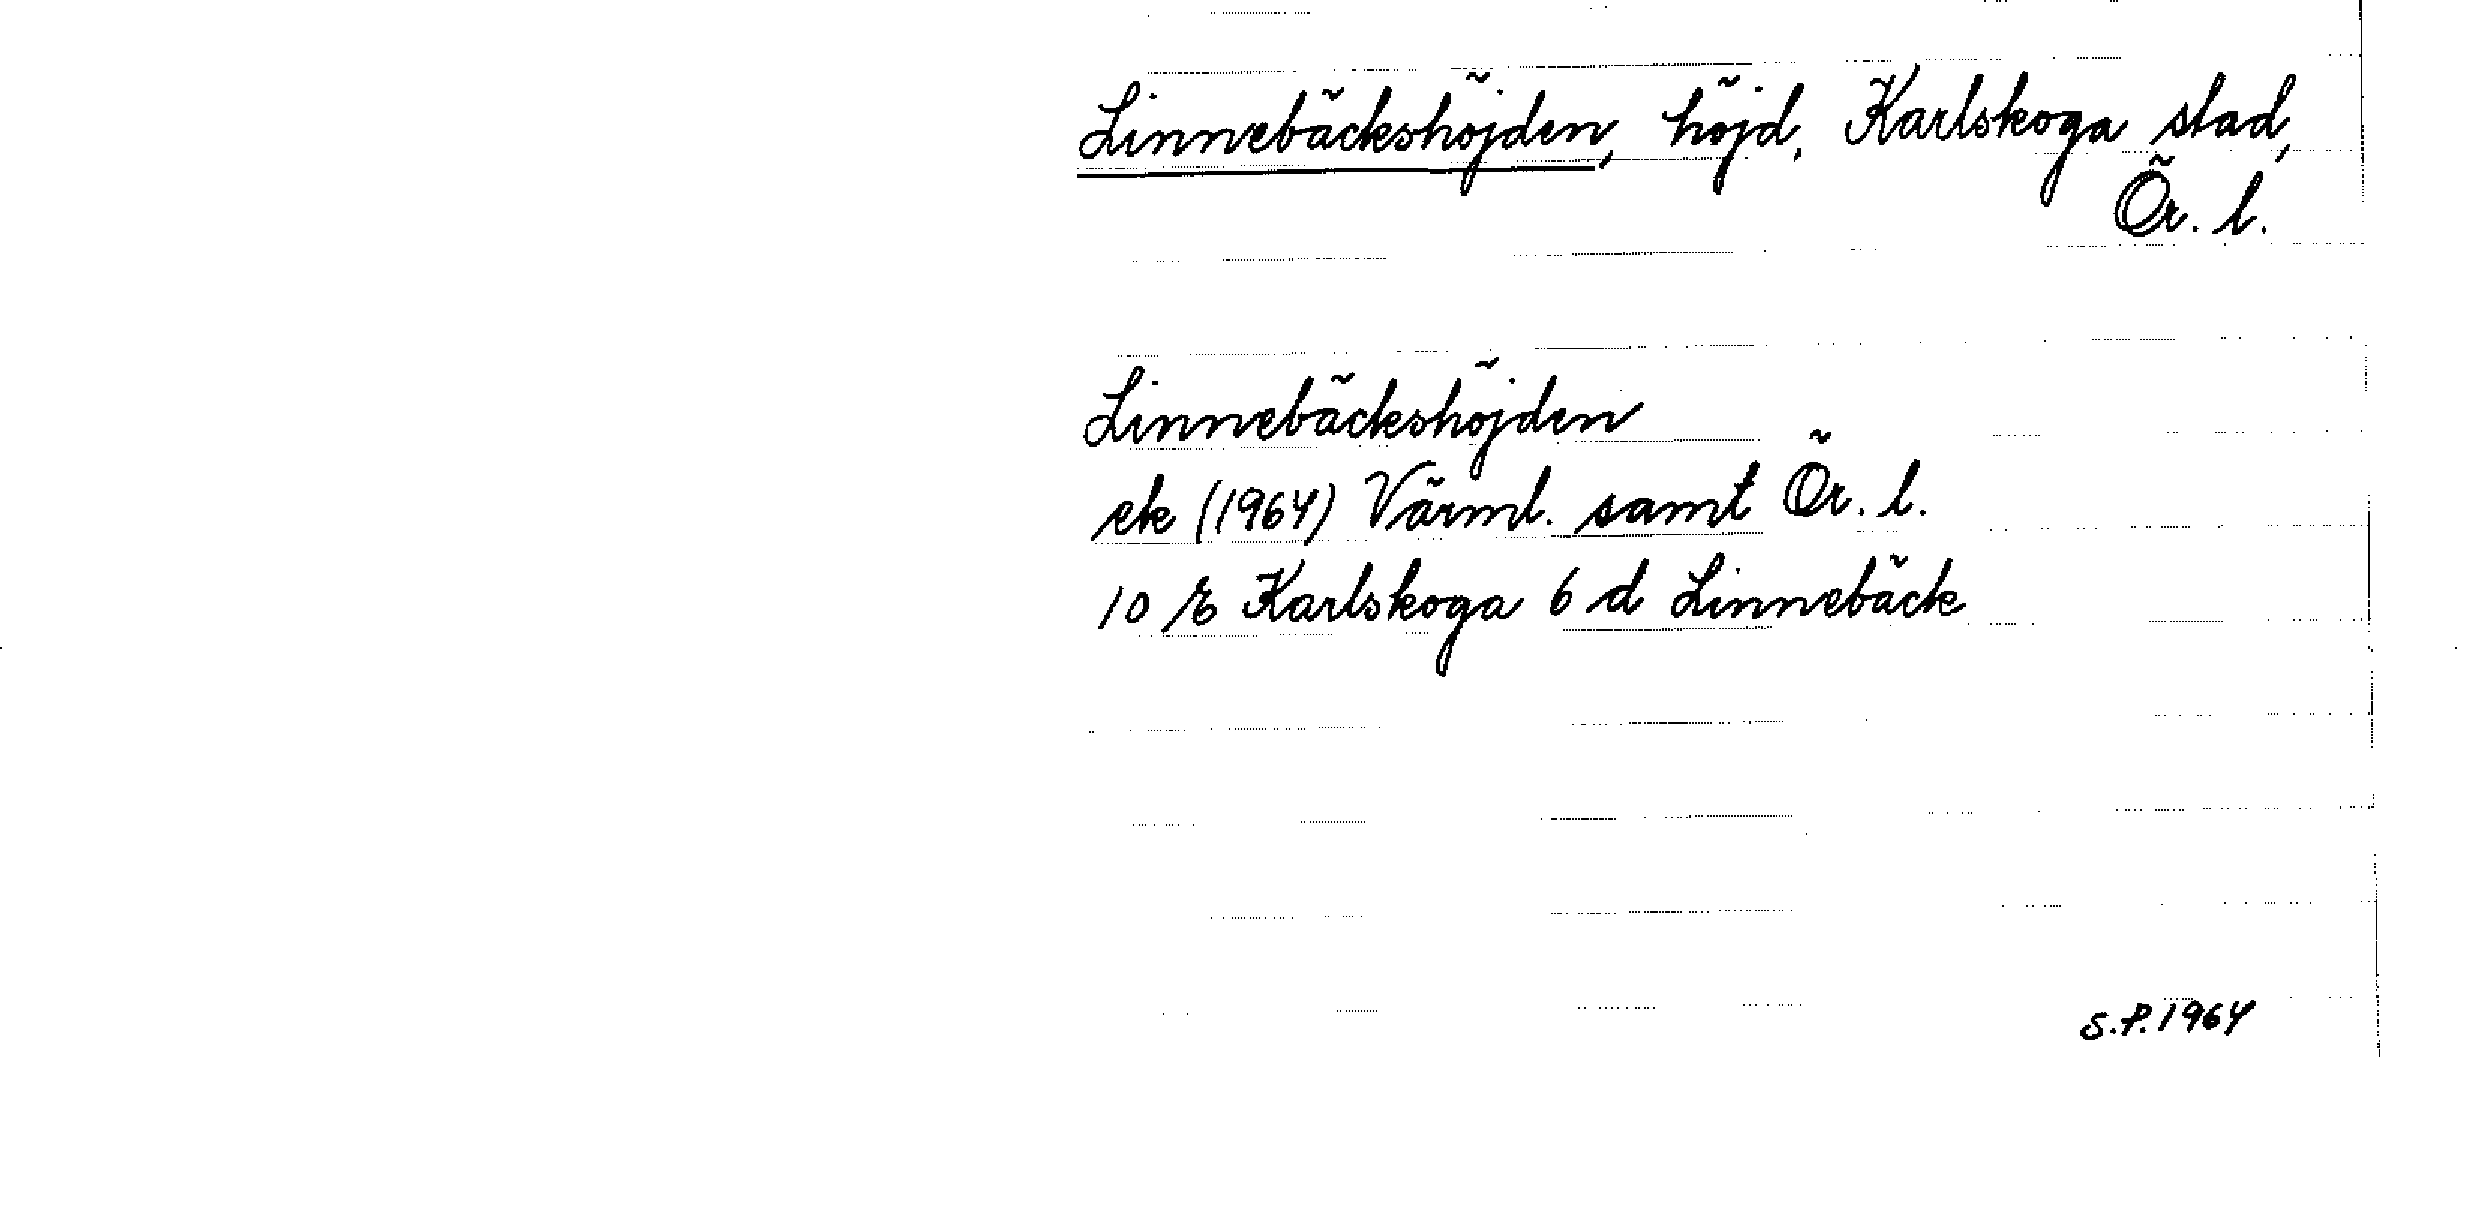 Linnebäckshöjden, höjd, Karlskoga stad,
Ör. l.
Linnebäckshöjden
ek (1964) Värml. samt Ör. l.
10 E Karlskoga 6 d Linnebäck
S.P. 1964